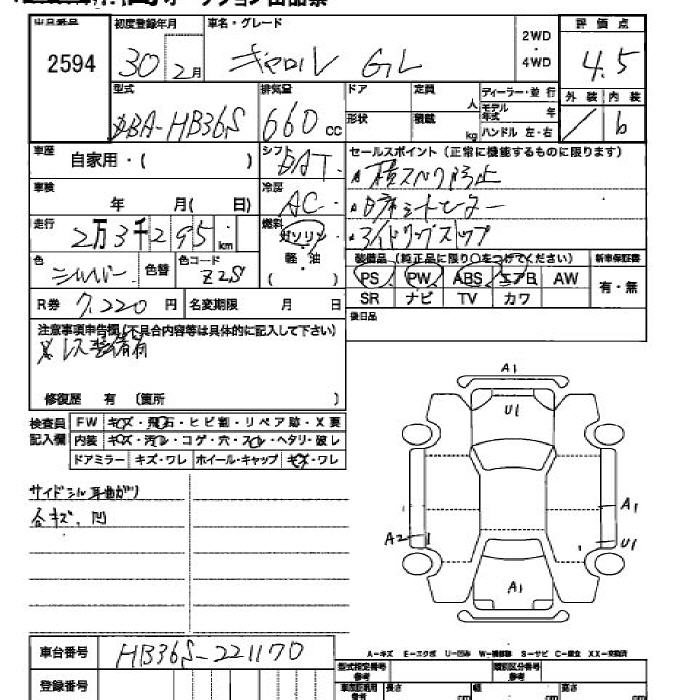 出品番号 初度登録年月 車名・グレード 2WD・4WD 評価点
2594 30 2月 キャロル GL 4.5
型式 排気量 ドア 定員 人 ディーラー・並行 外装 内装
DBA-HB36S 660 cc 形状 積載 kg モデル年式 年 ハンドル 左・右 / b
車歴 自家用・( ) シフト AT セールスポイント(正常に機能するものに限ります)
横スベリ防止
車検 年 月( 日) 冷房 AC
シートヒーター
走行 2万3千295km 燃料 ガソリン
アイドリングストップ
軽・油
( )
色 シルバー 色替 色コード Z2S 装備品(純正品に限り○をつけてください) 新車保証書
PS PW ABS エアB AW 有・無
R券 7,220円 名変期限 月 日 SR ナビ TV カワ
注意事項申告欄(不具合内容等は具体的に記入して下さい) 後日品
レス装備有
修復歴 有 〔箇所 〕
検査員記入欄 FW キズ・飛石・ヒビ割・リペア跡・X要
内装 キズ・汚レ・コゲ・穴・スレ・ヘタリ・破レ
ドアミラー キズ・ワレ ホイール・キャップ キズ・ワレ
A1
U1
サイドシル耳曲がり
各キズ、凹
A1
A2 1 U1
A1
A-キズ E-エクボ U-凹み W-補修跡 S-サビ C-腐食 XX-交換済
車台番号 HB36S-221170
型式指定番号 参考 類別区分番号 参考
登録番号 長さ cm 幅 cm 高さ cm